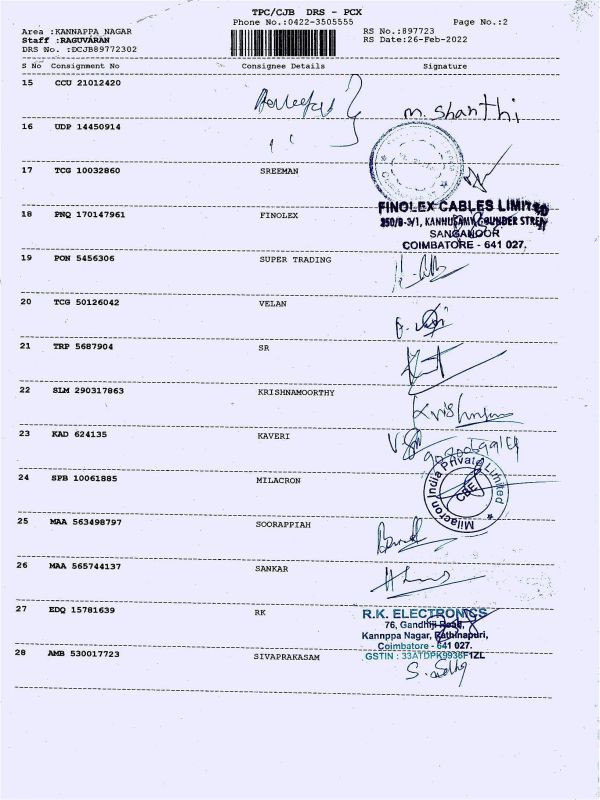 TPC/CJB DRS - PCX
Phone No.:0422-3505555 Page No.:2
Area :KANNAPPA NAGAR RS No.:897723
Staff :RAGUVARAN RS Date:26-Feb-2022
DRS No. :DCJB89772302
S No Consignment No Consignee Details Signature
15 CCU 21012420
m. shanthi
16 UDP 14450914
17 TCG 10032860 SREEMAN
18 PNQ 170147961 FINOLEX
FINOLEX CABLES LIMITED
250/B-3/1, KANNUSAMY GOUNDER STREET
SANGANOOR
COIMBATORE - 641 027.
19 PON 5456306 SUPER TRADING
20 TCG 50126042 VELAN
21 TRP 5687904 SR
22 SLM 290317863 KRISHNAMOORTHY
23 KAD 624135 KAVERI
24 SPB 10061885 MILACRON
Milacron India Private Limited
CBE
25 MAA 563498797 SOORAPPIAH
26 MAA 565744137 SANKAR
27 EDQ 15781639 RK
R.K. ELECTRONICS
76, Gandhiji Road,
Kannppa Nagar, Rathinapuri,
Coimbatore - 641 027.
GSTIN : 33ATDPK9938F1ZL
28 AMB 530017723 SIVAPRAKASAM